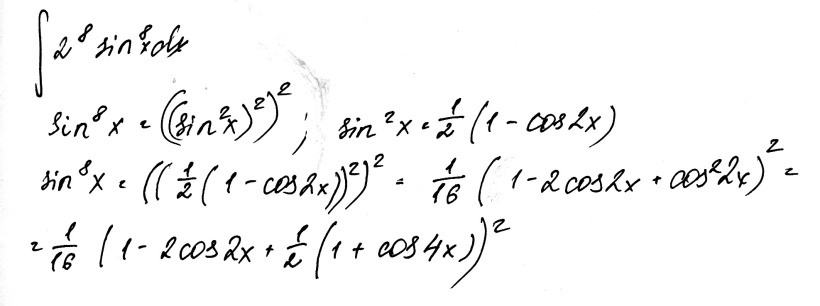 ∫ 2⁸ sin⁸x dx
sin⁸x = ((sin²x)²)² ; sin²x = 1/2 (1 - cos2x)
sin⁸x = ((1/2 (1 - cos2x))²)² = 1/16 (1 - 2cos2x + cos²2x)² =
= 1/16 (1 - 2cos2x + 1/2 (1 + cos4x))²